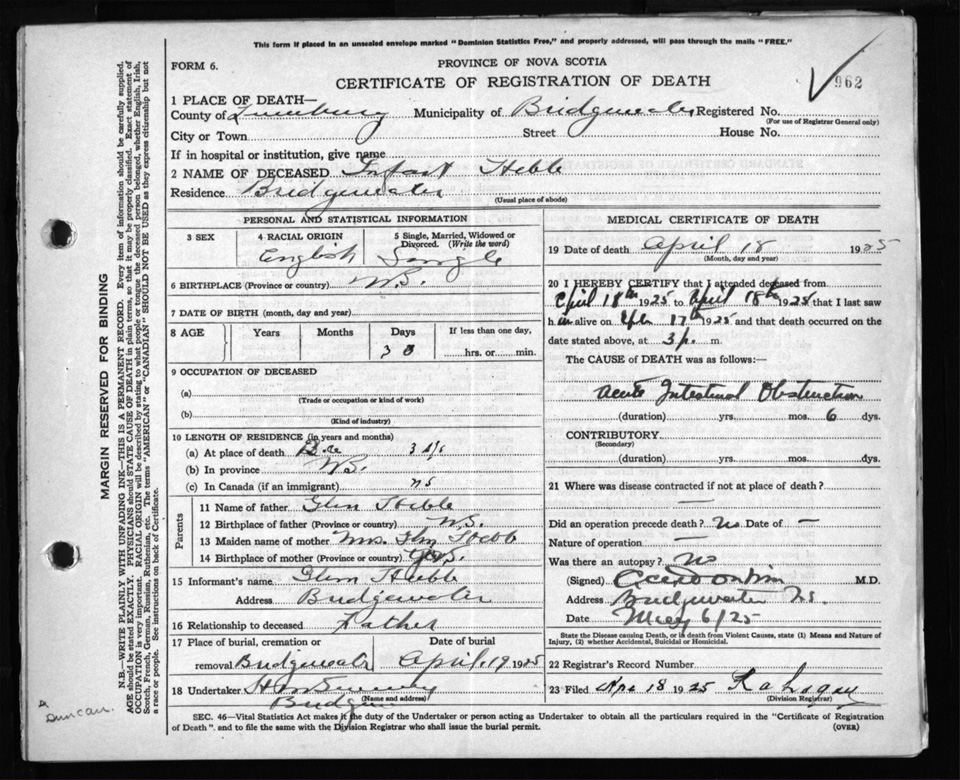 This form if placed in an unsealed envelope marked "Dominion Statistics Free," and properly addressed, will pass through the mails "FREE."
FORM 6.
PROVINCE OF NOVA SCOTIA
CERTIFICATE OF REGISTRATION OF DEATH
962
1 PLACE OF DEATH—
County of Lunenburg Municipality of Bridgewater Registered No.
(For use of Registrar General only)
City or Town Street House No.
If in hospital or institution, give name
2 NAME OF DECEASED Infant Hebb
Residence Bridgewater
(Usual place of abode)
PERSONAL AND STATISTICAL INFORMATION
3 SEX
4 RACIAL ORIGIN
English
5 Single, Married, Widowed or Divorced. (Write the word)
Single
6 BIRTHPLACE (Province or country) N.S.
7 DATE OF BIRTH (month, day and year)
8 AGE Years Months Days If less than one day,
3 hrs. or min.
9 OCCUPATION OF DECEASED
(a)
(Trade or occupation or kind of work)
(b)
(Kind of industry)
10 LENGTH OF RESIDENCE (in years and months)
(a) At place of death 3
(b) In province N.S.
(c) In Canada (if an immigrant) NS
Parents
11 Name of father Glen Hebb
12 Birthplace of father (Province or country) N.S.
13 Maiden name of mother Mrs. Hebb
14 Birthplace of mother (Province or country) N.S.
15 Informant's name Glenn Hebb
Address Bridgewater
16 Relationship to deceased Father
17 Place of burial, cremation or removal Bridgewater
Date of burial April 19 1925
18 Undertaker
(Name and address)
MEDICAL CERTIFICATE OF DEATH
19 Date of death April 18 1925
(Month, day and year)
20 I HEREBY CERTIFY that I attended deceased from
April 18th 1925 to April 18th 1925 that I last saw
h im alive on 17th 1925 and that death occurred on the
date stated above, at 3 p. m.
The CAUSE of DEATH was as follows:
Acute Intestinal Obstruction
(duration) yrs. mos. 6 dys.
CONTRIBUTORY
(Secondary)
(duration) yrs. mos. dys.
21 Where was disease contracted if not at place of death?
—
Did an operation precede death? No Date of —
Nature of operation —
Was there an autopsy? No
(Signed) M.D.
Address Bridgewater N.S.
Date May 6/25
State the Disease causing Death, or in death from Violent Causes, state (1) Means and Nature of Injury, (2) whether Accidental, Suicidal or Homicidal.
22 Registrar's Record Number
23 Filed Apr 18 1925
(Division Registrar)
SEC. 46—Vital Statistics Act makes it the duty of the Undertaker or person acting as Undertaker to obtain all the particulars required in the "Certificate of Registration
of Death" and to file the same with the Division Registrar who shall issue the burial permit.
(OVER)
MARGIN RESERVED FOR BINDING
N.B.—WRITE PLAINLY WITH UNFADING INK—THIS IS A PERMANENT RECORD. Every item of information should be carefully supplied.
AGE should be stated EXACTLY. PHYSICIANS should STATE CAUSE OF DEATH in plain terms, so that it may be properly classified. Exact statement of
OCCUPATION is very important. RACIAL ORIGIN will be described by stating to what people or tongue the deceased person belonged, whether English, Irish,
Scotch, French, German, Russian, Ruthenian, etc. The terms "AMERICAN" or "CANADIAN" SHOULD NOT BE USED as they express citizenship but not
a race or people. See instructions on back of Certificate.
Duncan.